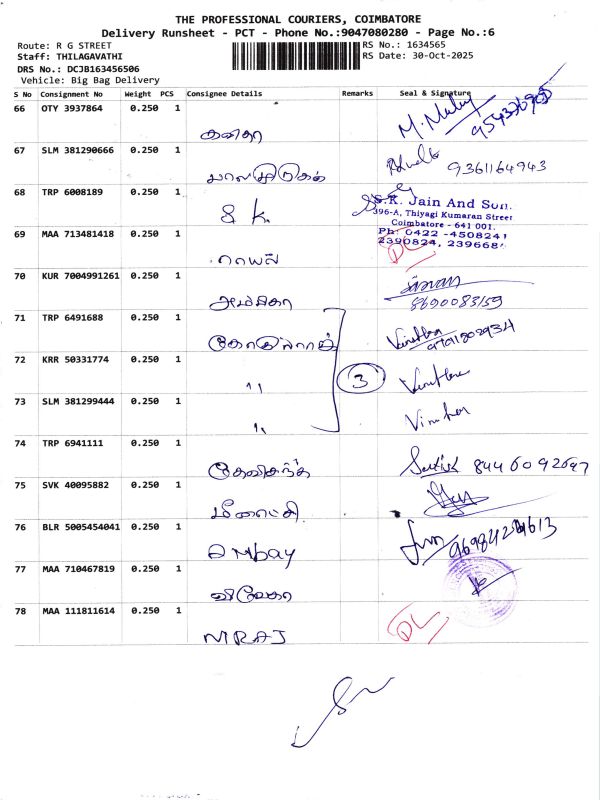 THE PROFESSIONAL COURIERS, COIMBATORE
Delivery Runsheet - PCT - Phone No.:9047080280 - Page No.:6
Route: R G STREET
RS No.: 1634565
Staff: THILAGAVATHI
RS Date: 30-Oct-2025
DRS No.: DCJB163456506
Vehicle: Big Bag Delivery
S No Consignment No Weight PCS Consignee Details Remarks Seal & Signature
66 OTY 3937864 0.250 1
கவிதா
67 SLM 381290666 0.250 1
9361164943
68 TRP 6008189 0.250 1
S K.
S.K. Jain And Sun.
396-A, Thiyagi Kumaran Street
Coimbatore - 641 001.
Ph: 0422 - 4508241
2390824, 239668
69 MAA 713481418 0.250 1
DL
70 KUR 7004991261 0.250 1
அம்பிகா
8690083159
71 TRP 6491688 0.250 1
72 KRR 50331774 0.250 1
" 3
73 SLM 381299444 0.250 1
"
74 TRP 6941111 0.250 1
8446092697
75 SVK 40095882 0.250 1
மீனாட்சி
76 BLR 5005454041 0.250 1
ambay
77 MAA 710467819 0.250 1
விவேகா
78 MAA 111811614 0.250 1
MRAJ DL